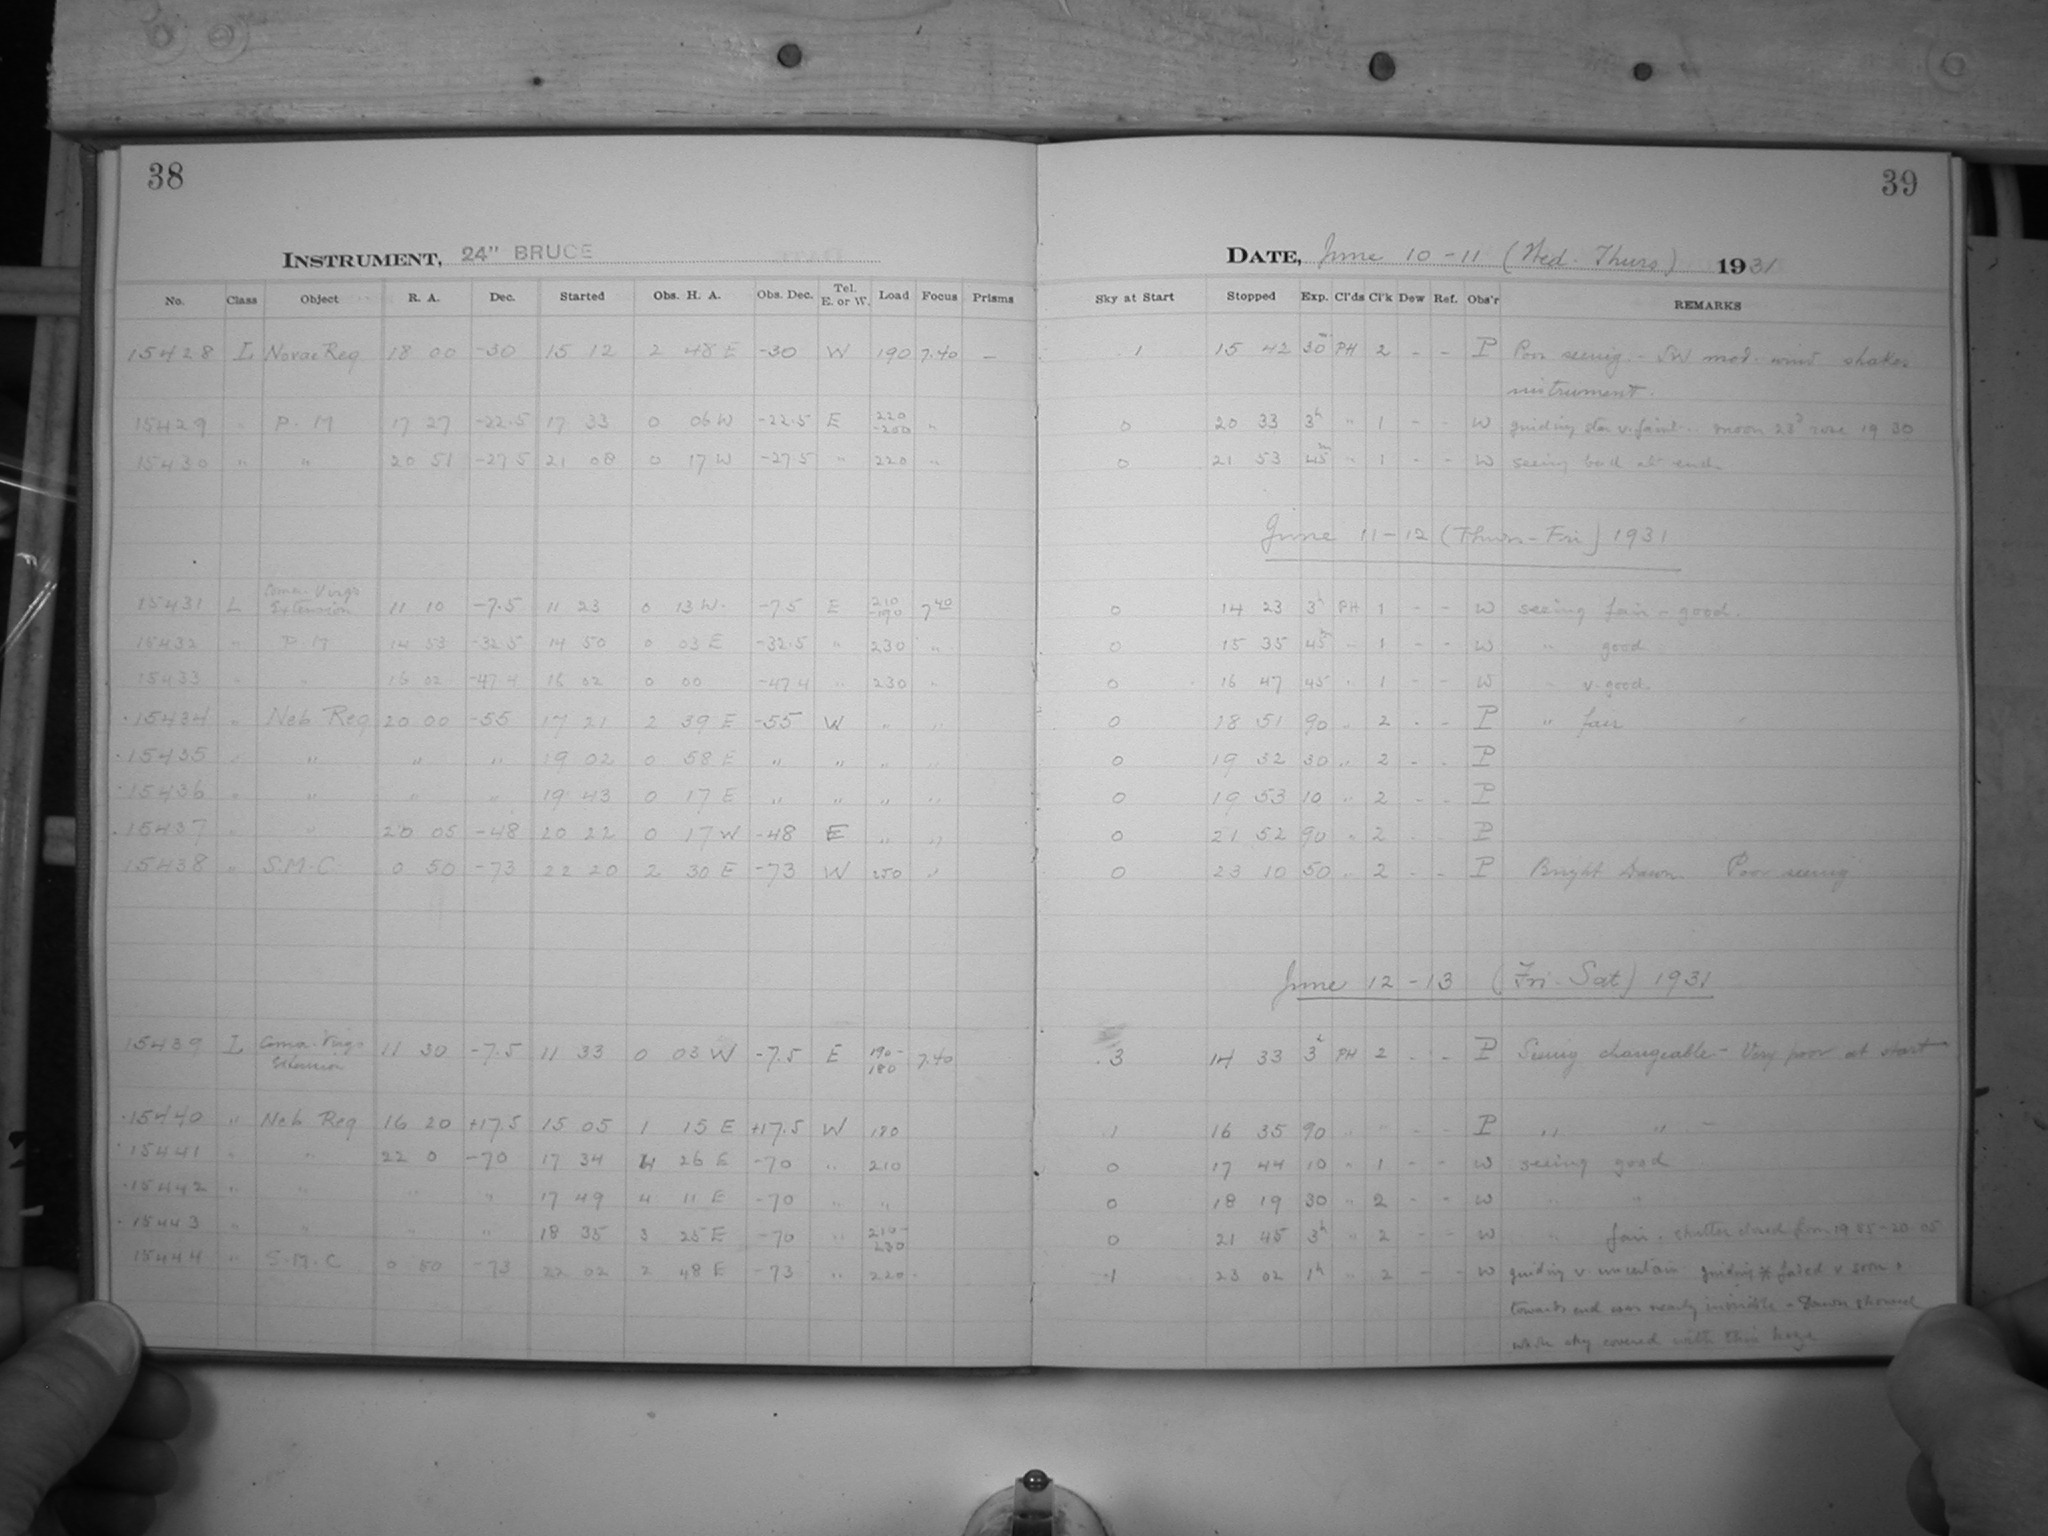 38
INSTRUMENT, 24" BRUCE
No. Class Object R. A. Dec. Started Obs. H. A. Obs. Dec. Tel. E. or W. Load Focus Prisms
15428 L Novae Reg 18 00 -30 15 12 2 48 E -30 W 190 7.40 -
15429 " P. M 17 27 -22.5 17 33 0 06 W -22.5 E 220 -200 "
15430 " " 20 51 -27.5 21 08 0 17 W -27.5 " 220 "
15431 L Coma-Virgo Extension 11 10 -7.5 11 23 0 13 W. -7.5 E 210 -190 7 40
15432 " P. M 14 53 -32.5 14 50 0 03 E -32.5 " 230 "
15433 " " 16 02 -47.4 16 02 0 00 -47.4 " 230 "
15434 " Neb Reg 20 00 -55 17 21 2 39 E -55 W " "
15435 " " " " 19 02 0 58 E " " " "
15436 " " " " 19 43 0 17 E " " " "
15437 " " 20 05 -48 20 22 0 17 W -48 E " "
15438 " S.M.C. 0 50 -73 22 20 2 30 E -73 W "
15439 L Coma-Virgo Extension 11 30 -7.5 11 33 0 03 W -7.5 E 190- 180 7.40
15440 " Neb Reg 16 20 +17.5 15 05 1 15 E +17.5 W 180
15441 " " 22 0 -70 17 34 4 26 E -70 " 210
15442 " " " " 17 49 4 11 E -70 " "
15443 " " " " 18 35 3 25 E -70 " 210- 230
15444 " S.M.C 0 50 -73 22 02 2 48 E -73 " 220
39
DATE, June 10-11 (Wed. Thurs) 1931
Sky at Start Stopped Exp. Cl'ds Cl'k Dew Ref. Obs'r REMARKS
1 15 42 30m PH 2 - - P Poor seeing - SW mod. wind shakes
instrument.
0 20 33 3h " 1 - - W guiding star v. faint - moon 23d rose 19 30
0 21 53 45m " 1 - - W seeing bad at end
June 11-12 (Thurs-Fri) 1931
0 14 23 3h PH 1 - - W seeing fair - good.
0 15 35 45m " 1 - - W " good
0 16 47 45 " 1 - - W " v. good.
0 18 51 90 " 2 - - P " fair
0 19 32 30 " 2 - - P
0 19 53 10 " 2 - - P
0 21 52 90 " 2 - - P
0 23 10 50 " 2 - - P Bright Dawn. Poor seeing
June 12-13 (Fri-Sat) 1931
3 14 33 3h PH 2 - - P Seeing changeable - Very poor at start
1 16 35 90 " " - - P " " -
0 17 44 10 " 1 - - W seeing good
0 18 19 30 " 2 - - W " "
0 21 45 3h " 2 - - W " fair. shutter closed from 19 55-20 05
1 23 02 1h " 2 - - W guiding v. uncertain guiding * faded v soon &
towards end was nearly invisible - Dawn showed
sky covered with thin haze